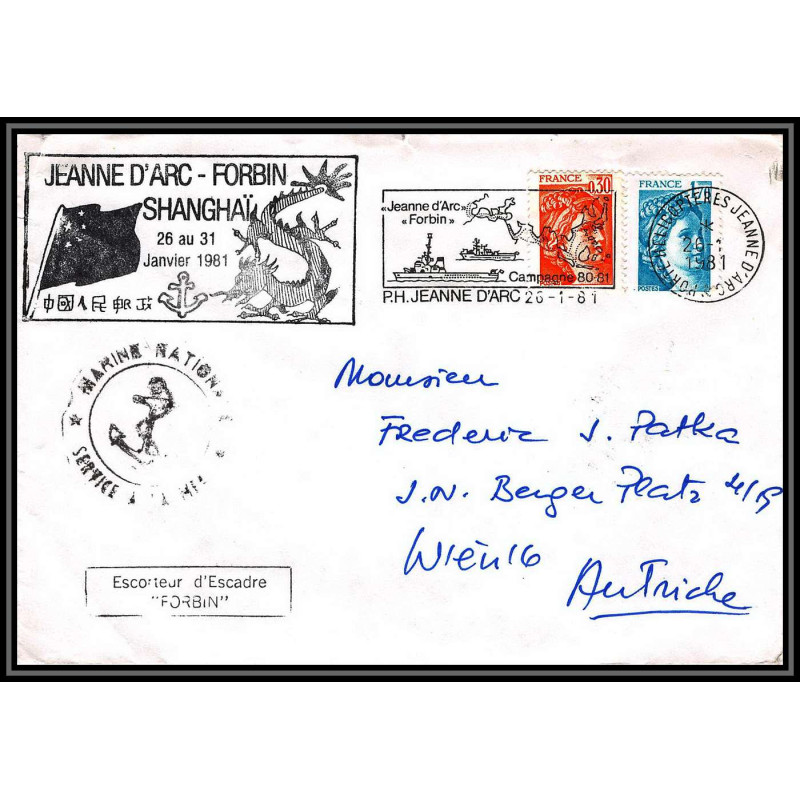 JEANNE D'ARC - FORBIN
SHANGHAÏ
26 au 31
Janvier 1981
中國人民郵政
«Jeanne d'Arc»
«Forbin»
Campagne 80-81
P.H. JEANNE D'ARC 26-1-81
FRANCE
0,30
FRANCE
POSTES
PORTE-HELICOPTERES JEANNE D'ARC
26-1
1981
MARINE NATION
SERVICE A LA MER
Monsieur
Frederic J. Patka
J.N. Berger Platz 4/15
Wien 16
Autriche
Escorteur d'Escadre
"FORBIN"